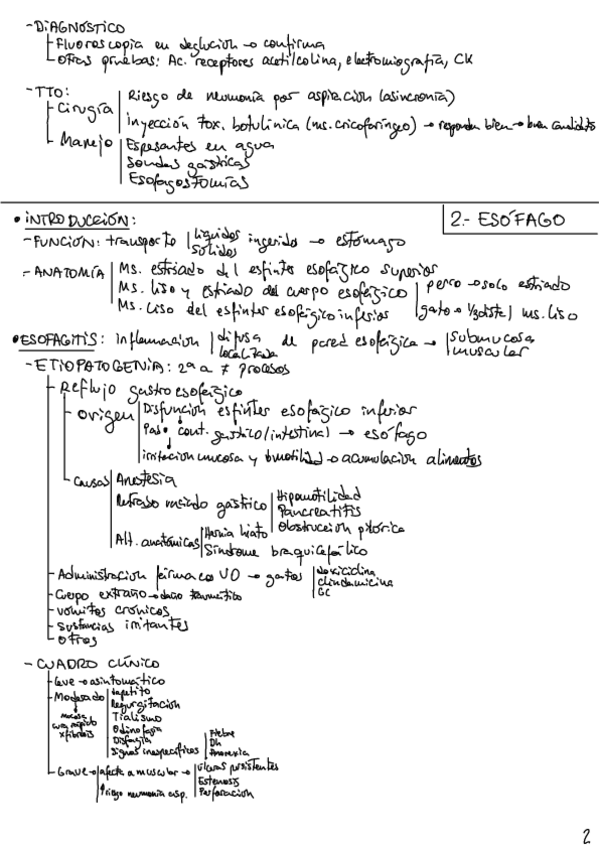 - DIAGNÓSTICO
Fluoroscopia en deglución → confirma
Otras pruebas: Ac. receptores acetilcolina, electromiografía, CK
- TTO:
Cirugía | Riesgo de neumonía por aspiración (asincronía)
Inyección tox. botulínica (ms. cricofaríngeo) → responden bien → buen candidato
Manejo | Espesantes en agua
Sondas gástricas
Esofagostomías
2.- ESÓFAGO
• INTRODUCCIÓN:
- FUNCIÓN: transporte | líquidos
sólidos
ingerido → estómago
- ANATOMÍA | Ms. estriado del esfínter esofágico superior
Ms. liso y estriado del cuerpo esofágico | perro → solo estriado
gato → 1/3 distal ms. liso
Ms. liso del esfínter esofágico inferior
• ESOFAGITIS: inflamación | difusa
localizada
de pared esofágica → | submucosa
muscular
- ETIOPATOGENIA: 2ª a ≠ procesos
Reflujo gastroesofágico
Origen | Disfunción esfínter esofágico inferior
Paso cont. gástrico/intestinal → esófago
irritación mucosa y ↓motilidad → acumulación alimentos
Causas | Anestesia
Retraso vaciado gástrico | Hipomotilidad
Pancreatitis
Obstrucción pilórica
Alt. anatómicas | Hernia hiato
Síndrome braquicefálico
Administración fármacos VO → gatos | doxiciclina
clindamicina
GC
Cuerpo extraño → daño traumático
vómitos crónicos
Sustancias irritantes
Otros
- CUADRO CLÍNICO
Leve → asintomático
Moderado | ↓apetito
Regurgitación
Tialismo
Odinofagia
Disfagia
Signos inespecíficos | Fiebre
Dh
Anorexia
mucosa
cura rápido
x fibrosis
Grave → | afecta a muscular → | úlceras persistentes
Estenosis
Perforación
↑riesgo neumonía asp.
2